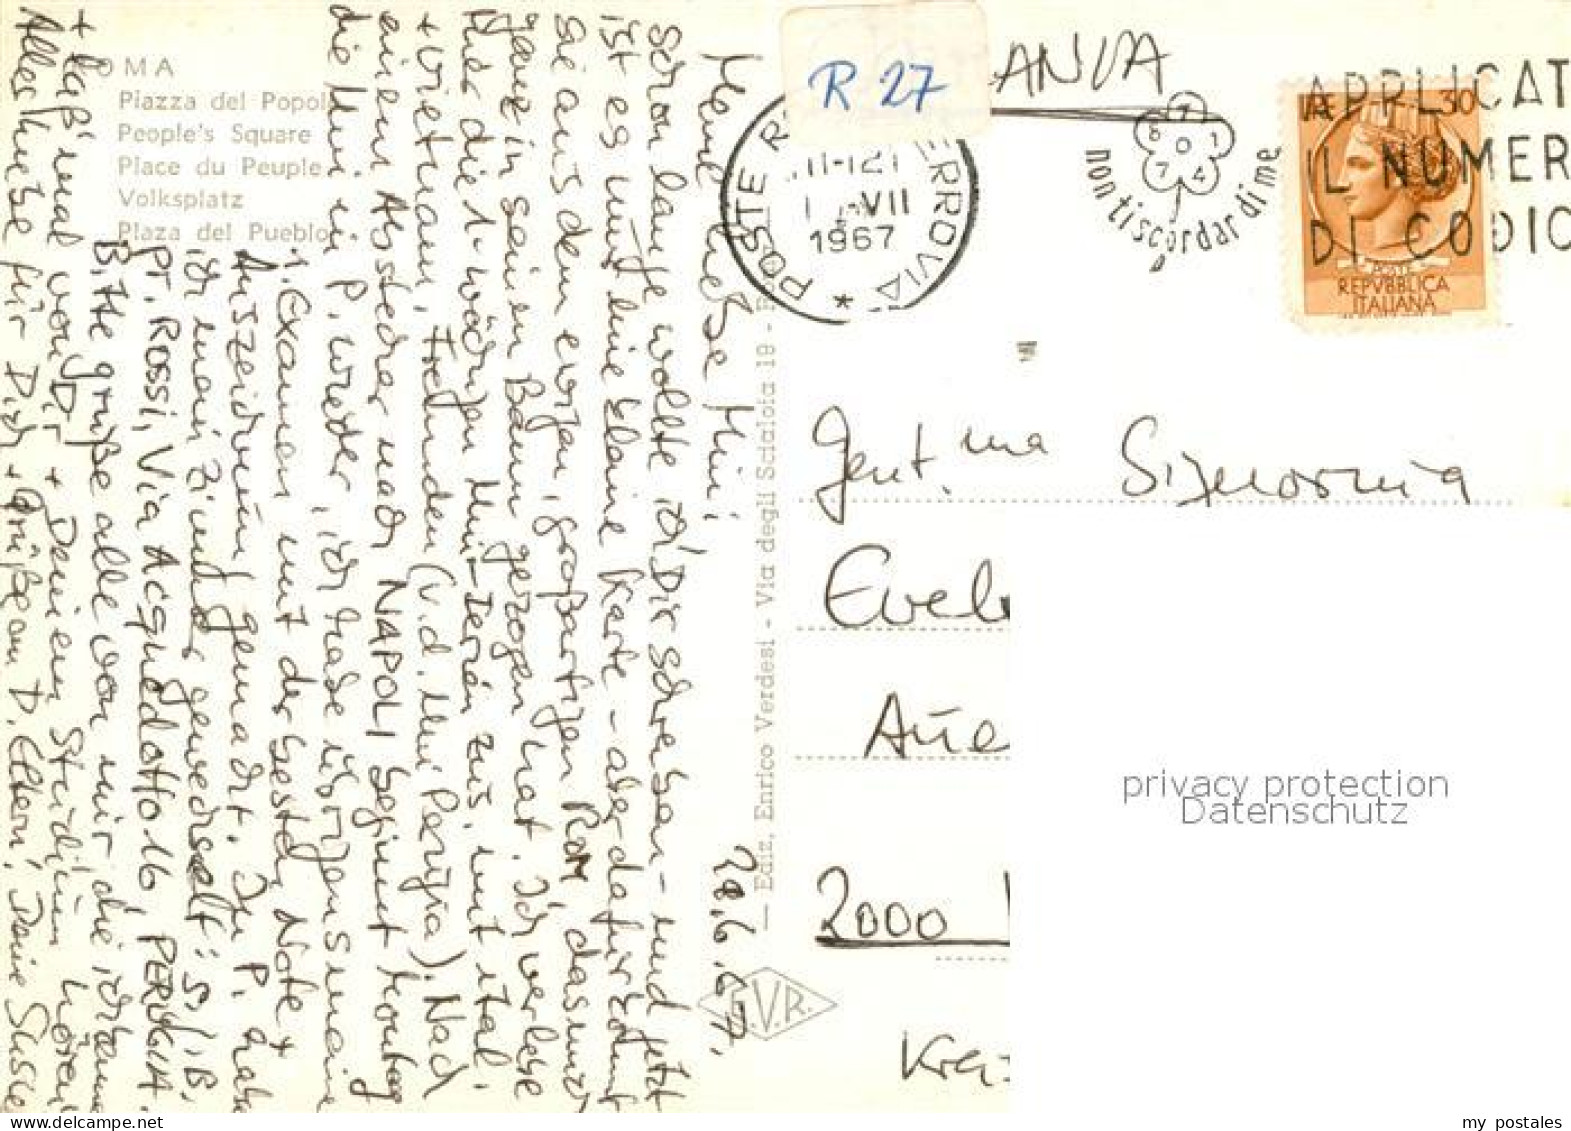 ROMA
Piazza del Popolo
People's Square
Place du Peuple
Volksplatz
Plaza del Pueblo
28.6.67.
Meine liebe Mini,
schon lange wollte ich Dir schreiben - und jetzt
ist es nur eine kleine Karte - aber dafür kommt
sie aus dem ewigen, großartigen ROM, das mich
ganz in seinen Bann gezogen hat. Ich verlebe
hier die 1-wöchigen Uni-Ferien zus. mit ital.
+ vietnam. Freunden (v.d. Uni Perugia). Nach
einem Abstecher nach NAPOLI beginnt Montag
die Uni in P. wieder, ich habe übrigens meine
1. Examen mit der besten Note +
Auszeichnung gemacht. In P. habe
ich mein Zimmer gewechselt: S.I.B.
pr. ROSSI, Via Acquedotto 16, PERUGIA.
Bitte grüße alle von mir die ich kenne
+ laß' mal von Dir + Deinem Studium hören!
Alles Liebe für Dich + Grüße an D. Eltern, Deine
— Ediz. Enrico Verdesi - Via degli Scialoia 19 - R
E.V.R.
R 27
ANIA
POSTE R ERROVIA *
11-12
1 -VII
1967
non ti scordar di me
APPLICAT
IL NUMER
DI CODIC
LIRE 30
POSTE
REPVBBLICA
ITALIANA
Gent.ma Signorina
Evel
2000
Krei
privacy protection
Datenschutz
my postales
www.delcampe.net